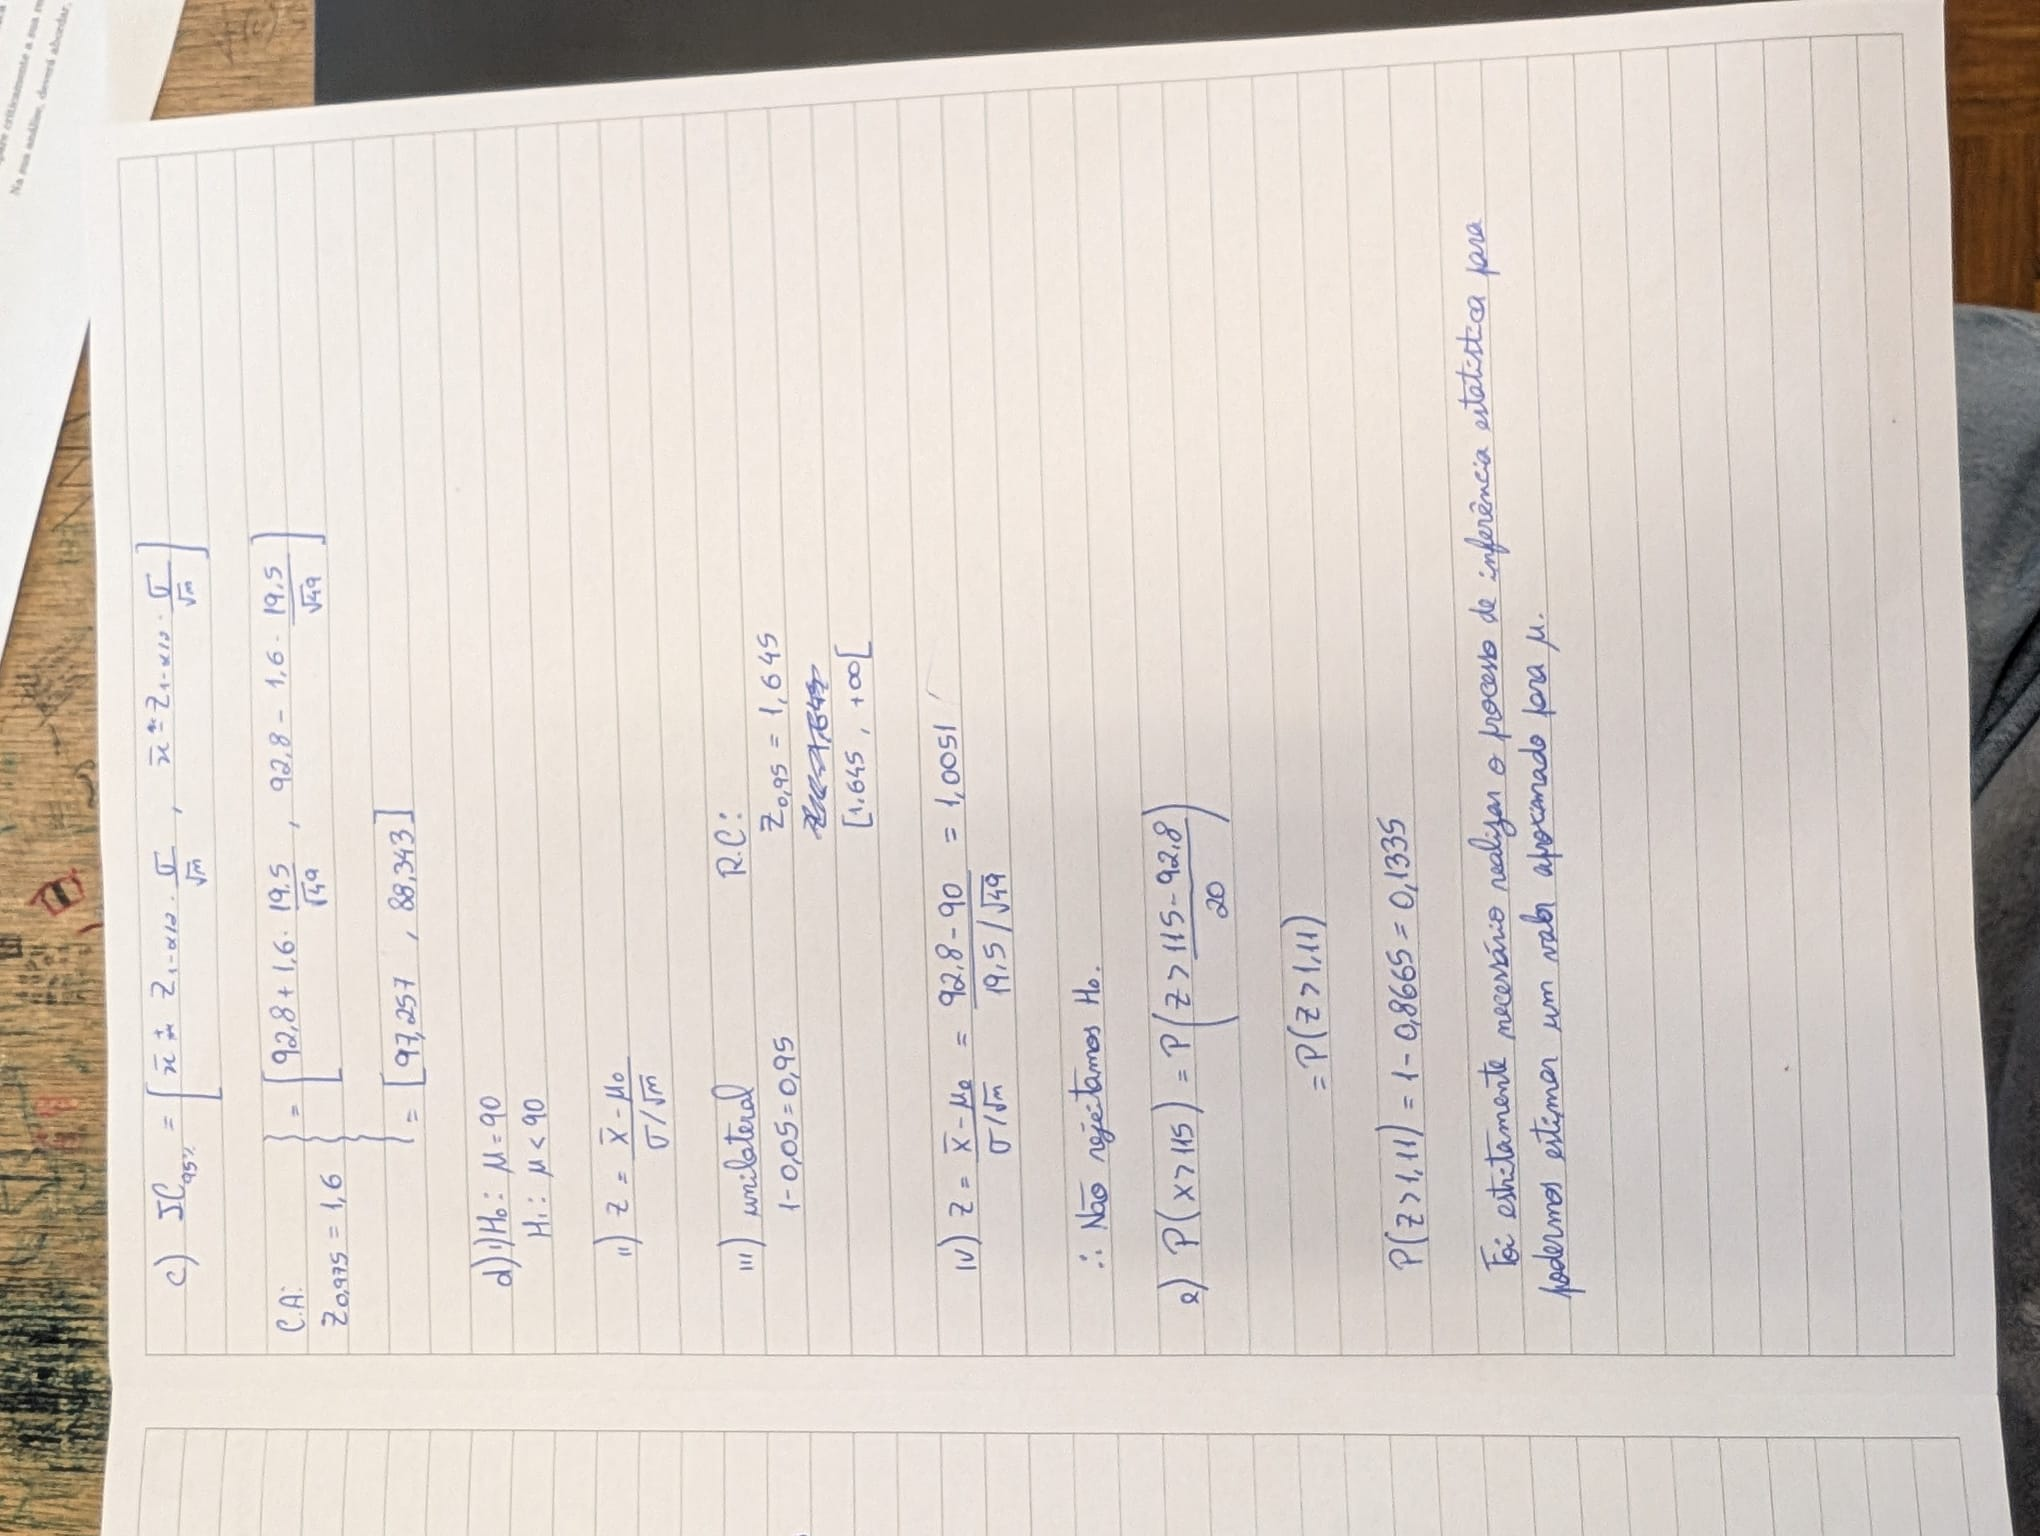 c) IC₉₅% = [x̄ ± z₁₋α/₂ · σ/√n , x̄ - z₁₋α/₂ · σ/√n]
C.A:
z₀,₉₇₅ = 1,6
= [92,8 + 1,6 · 19,5/√49 , 92,8 - 1,6 · 19,5/√49]
= [97,257 , 88,343]
d) i) H₀: μ = 90
H₁: μ < 90
ii) Z = (X̄ - μ₀)/(σ/√n)
iii) unilateral
1 - 0,05 = 0,95
R.C:
z₀,₉₅ = 1,645
[1,645 , +∞[
iv) Z = (X̄ - μ₀)/(σ/√n) = (92,8 - 90)/(19,5/√49) = 1,0051
∴ Não rejeitamos H₀.
e) P(X > 115) = P(Z > (115 - 92,8)/20)
= P(Z > 1,11)
P(Z > 1,11) = 1 - 0,8665 = 0,1335
Foi estritamente necessário realizar o processo de inferência estatística para
podermos estimar um valor aproximado para μ.
Na sua análise, deverá abordar,
criticamente a sua